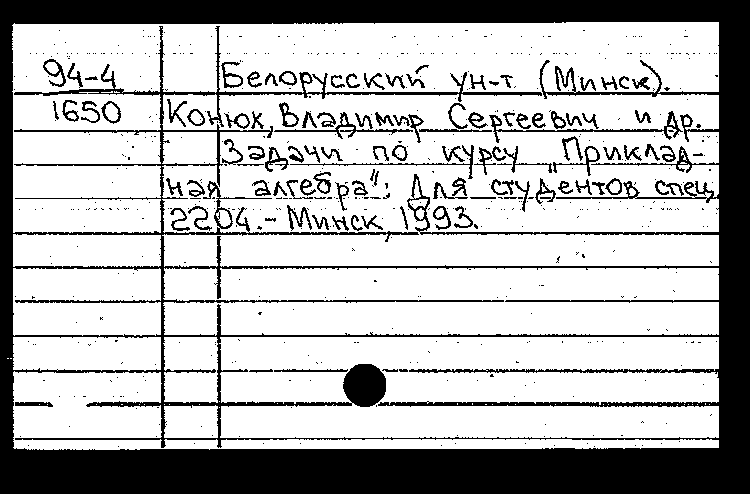 94-4 Белорусский ун-т (Минск).
1650 Конюх, Владимир Сергеевич и др.
Задачи по курсу „Приклад-
ная алгебра": Для студентов спец.
2204.- Минск, 1993.